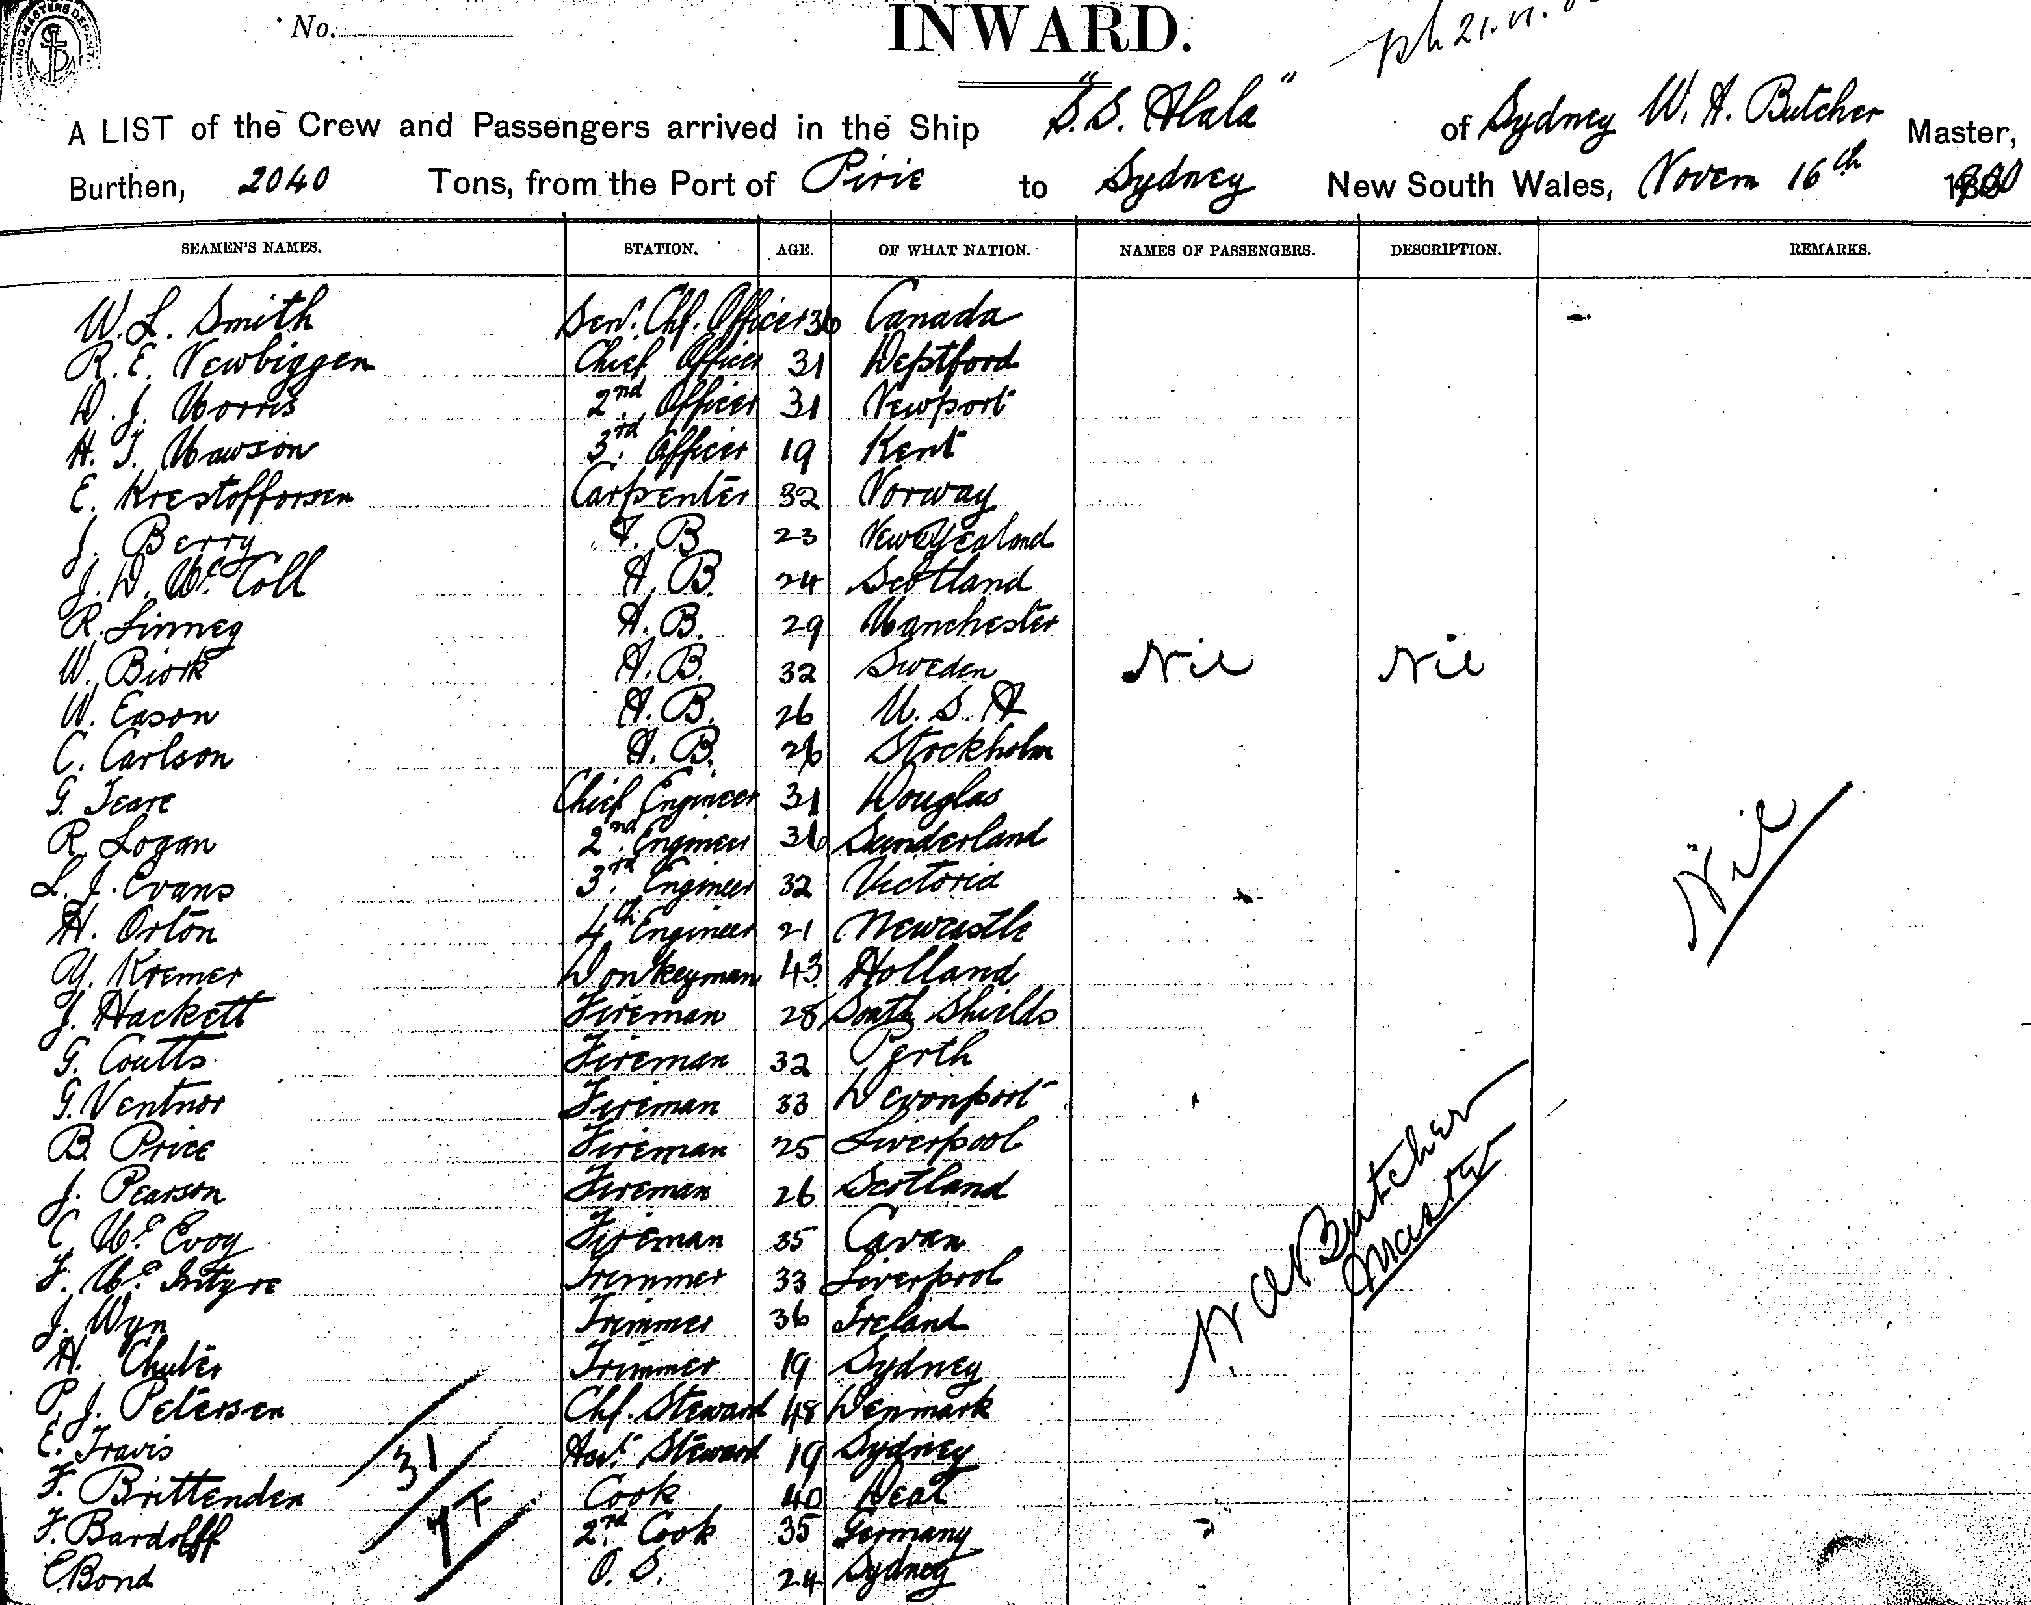 No.
INWARD.
A LIST of the Crew and Passengers arrived in the Ship "S.S. Alala" of Sydney W. A. Butcher Master,
Burthen, 2040 Tons, from the Port of Pirie to Sydney New South Wales, Novem 16th
SEAMEN'S NAMES. STATION. AGE. OF WHAT NATION. NAMES OF PASSENGERS. DESCRIPTION. REMARKS.
W. L. Smith Senr. Chf. Officer 36 Canada
R. E. Newbiggen Chief Officer 31 Deptford
D. J. Morris 2nd Officer 31 Newport
H. J. Mawson 3rd Officer 19 Kent
E. Krestofforsen Carpenter 32 Norway
J. Berry A. B. 23 New Zealand
J. D. McColl A. B. 24 Scotland
R. Linney A. B. 29 Manchester
W. Biork A. B. 32 Sweden Nil Nil
W. Eason A. B. 26 U. S. A
C. Carlson A. B. 26 Stockholm
G. Teare Chief Engineer 31 Douglas
R. Logan 2nd Engineer 36 Sunderland
L. J. Evans 3rd Engineer 32 Victoria Nil
H. Orton 4th Engineer 21 Newcastle
M. Kremer Donkeyman 43 Holland
J. Hackett Fireman 28 South Shields
G. Coutts Fireman 32 Perth
G. Ventnor Fireman 33 Devonport
B. Price Fireman 25 Liverpool
J. Pearson Fireman 26 Scotland
C. McEvoy Fireman 35 Cavan
F. McIntyre Trimmer 33 Liverpool
J. Wyn Trimmer 36 Ireland
H. Chuter Trimmer 19 Sydney
P. J. Petersen Chf. Steward 48 Denmark
E. Travis Asst. Steward 19 Sydney
F. Brittenden Cook 40 Deal
F. Bardolff 2nd Cook 35 Germany
C. Bond O. S. 24 Sydney
W A Butcher
Master
31